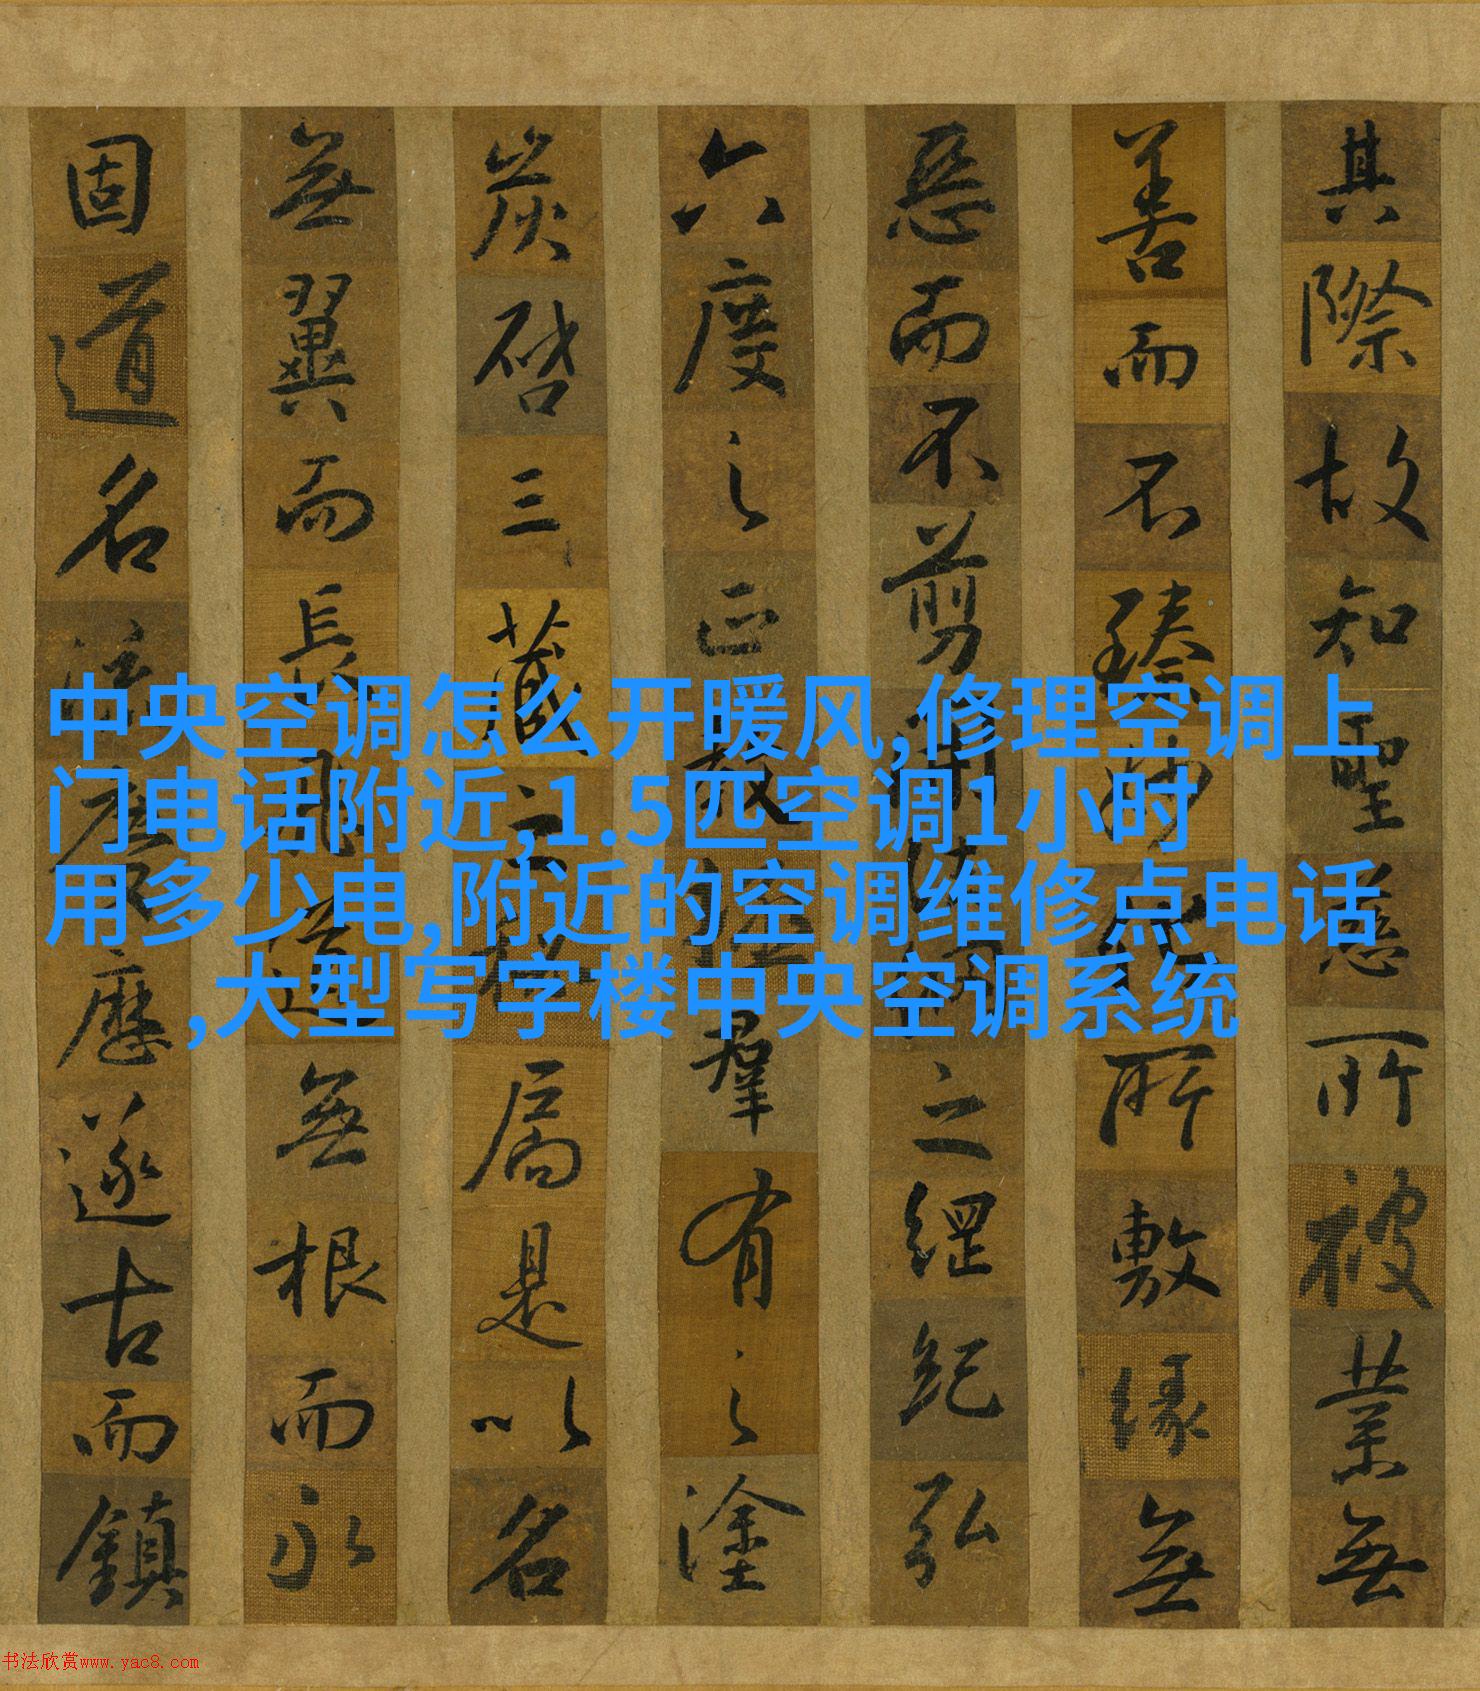 其際故知聖慈所被業無
善而不臻妙所敷緣無
惡而不剪開法網之綱紀弘
六度之正教拯羣有之塗
炭啓三藏之秘扃是以名
無翼而長飛道無根而永
固道名流慶歷遂古而鎮
中央空调怎么开暖风,修理空调上
门电话附近,1.5匹空调1小时
用多少电,附近的空调维修点电话
,大型写字楼中央空调系统
书法欣赏www.yac8.com